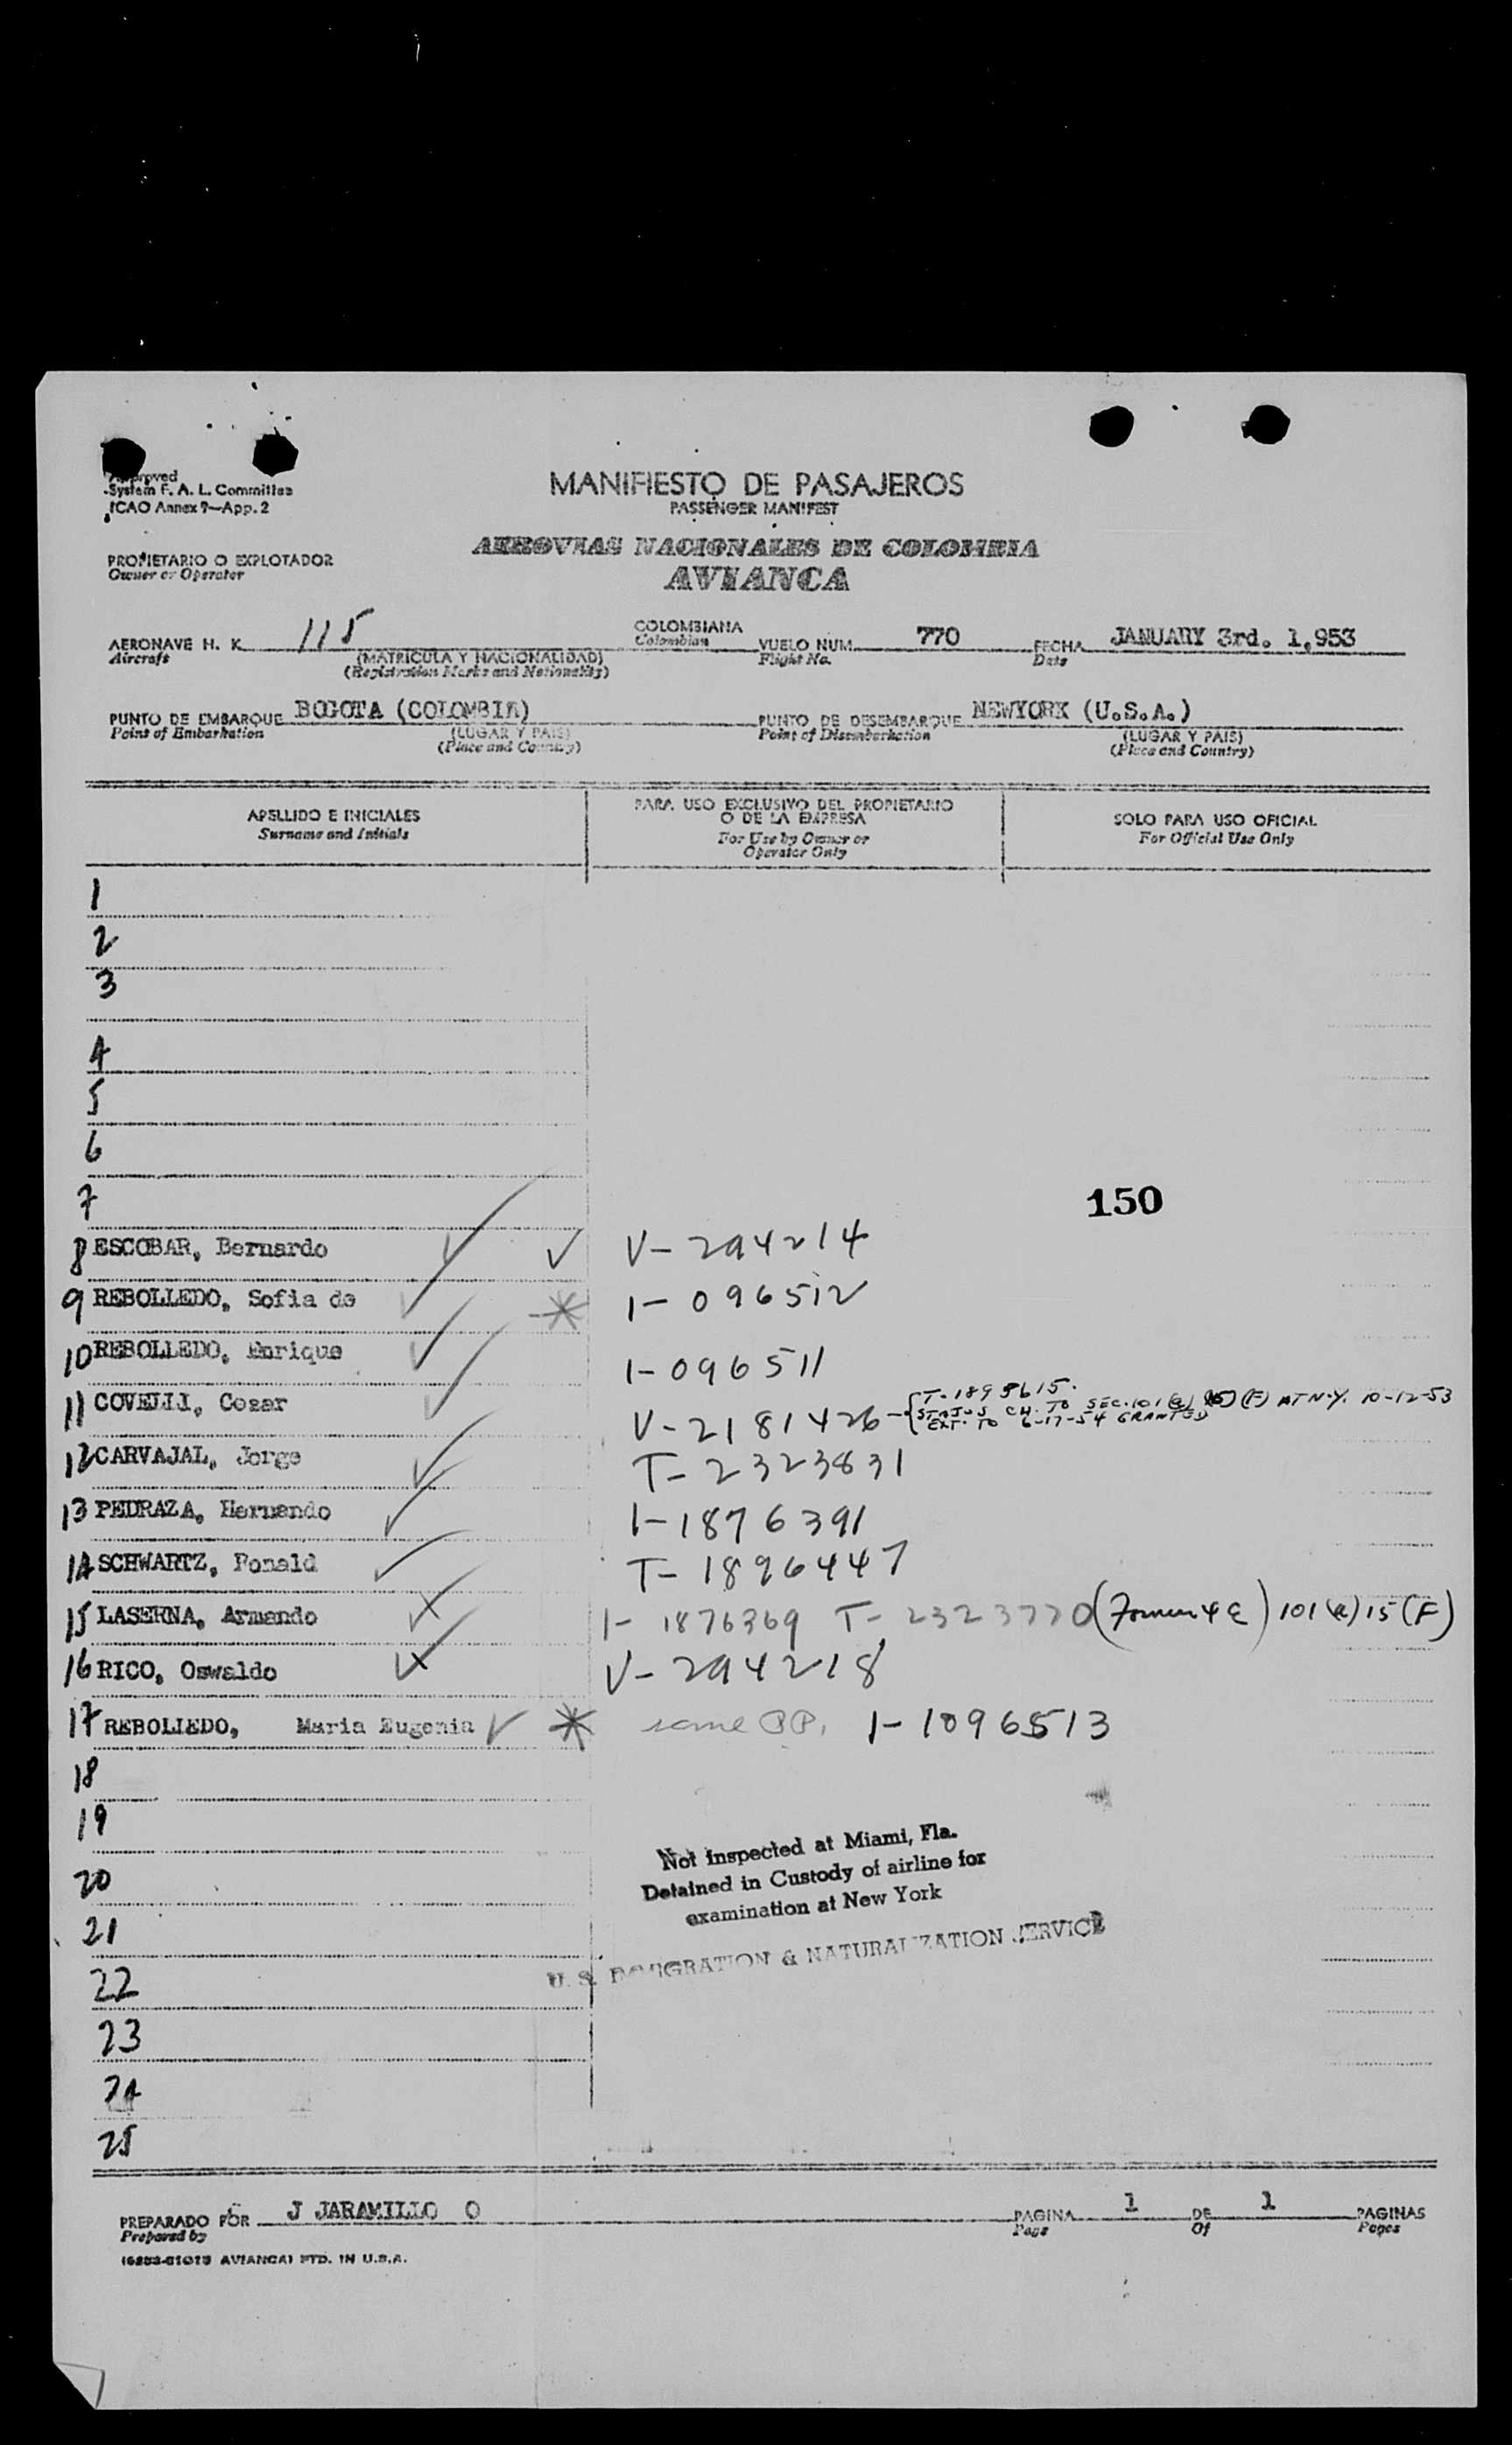 Approved
System F. A. L. Committee
ICAO Annex 9—App. 2
MANIFIESTO DE PASAJEROS
PASSENGER MANIFEST
AEROVIAS NACIONALES DE COLOMBIA
AVIANCA
PROPIETARIO O EXPLOTADOR
Owner or Operator
AERONAVE H. K. 115 COLOMBIANA VUELO NUM. 770 FECHA JANUARY 3rd. 1,953
Aircraft (MATRICULA Y NACIONALIDAD) Colombian Flight No. Date
(Registration Marks and Nationality)
PUNTO DE EMBARQUE BOGOTA (COLOMBIA) PUNTO DE DESEMBARQUE NEWYORK (U.S.A.)
Point of Embarkation (LUGAR Y PAIS) Point of Disembarkation (LUGAR Y PAIS)
(Place and Country) (Place and Country)
APELLIDO E INICIALES
Surname and Initials
PARA USO EXCLUSIVO DEL PROPIETARIO
O DE LA EMPRESA
For Use by Owner or
Operator Only
SOLO PARA USO OFICIAL
For Official Use Only
1
2
3
4
5
6
7
150
8 ESCOBAR, Bernardo V-294214
9 REBOLLEDO, Sofia de 1-096512
10 REBOLLEDO, Enrique 1-096511
11 COVELLI, Cesar V-2181426 - T-1895615.
STATUS CH. TO SEC. 101 (a) (15) (F) AT N.Y. 10-12-53
EXT. TO 6-17-54 GRANTED
12 CARVAJAL, Jorge T-2323831
13 PEDRAZA, Hernando 1-1876391
14 SCHWARTZ, Ronald T-1896447
15 LASERNA, Armando 1-1876369 T-2323770 (Former 4E) 101(a)15(F)
16 RICO, Oswaldo V-294218
17 REBOLLEDO, Maria Eugenia same PP. 1-1096513
18
19
20
21
22
23
24
25
Not Inspected at Miami, Fla.
Detained in Custody of airline for
examination at New York
U. S. IMMIGRATION & NATURALIZATION SERVICE
PREPARADO POR J JARAMILLO O PAGINA 1 DE 1 PAGINAS
Prepared by Page Of Pages
AVIANCA) PTD. IN U.S.A.